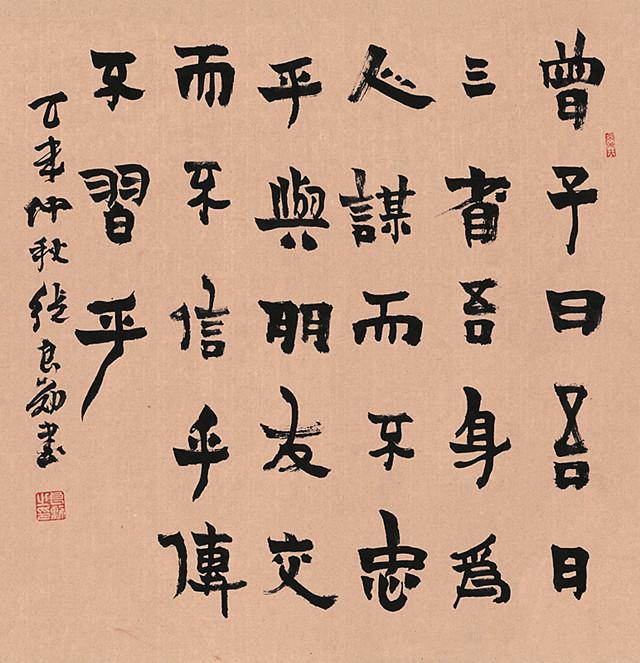 曾子曰吾日
三省吾身爲
人謀而不忠
乎與朋友交
而不信乎傳
不習乎
丁亥仲秋張良勛書